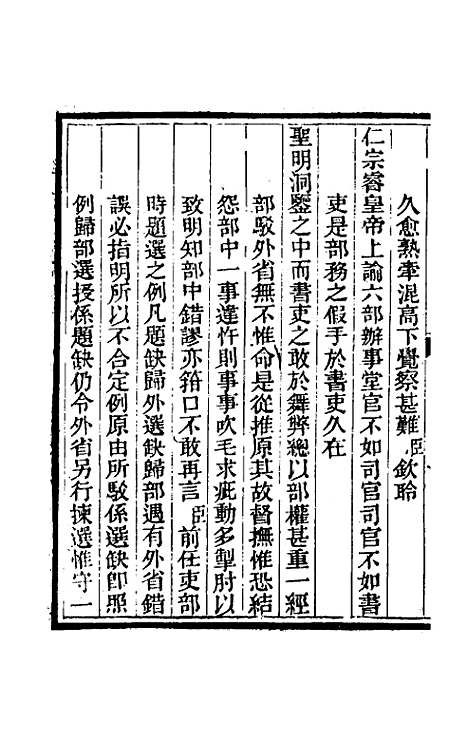 久愈熟牽混高下覺察甚難臣欽聆
仁宗睿皇帝上諭六部辦事堂官不如司官司官不如書
吏是部務之假手於書吏久在
聖明洞鑒之中而書吏之敢於舞弊總以部權甚重一經
部駁外省無不惟命是從推原其故督撫惟恐結
怨部中一事違忤則事事吹毛求疵動多掣肘以
致明知部中錯謬亦箝口不敢再言臣前任吏部
時題選之例凡題缺歸外選缺歸部遇有外省錯
誤必指明所以不合定例原由所駁係選缺卽照
例歸部選授係題缺仍令外省另行揀選惟守一